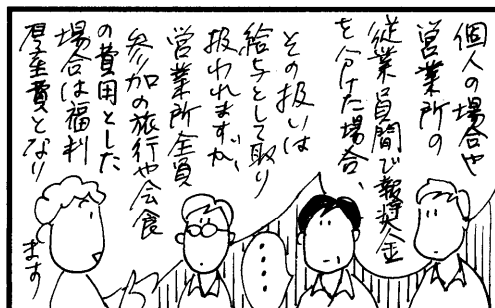 個人の場合や
営業所の
従業員間で報奨金
を分けた場合、
その扱いは
給与として取り
扱われますが、
営業所全員
参加の旅行や会食
の費用とした
場合は福利
厚生費となり
ます
・・・・